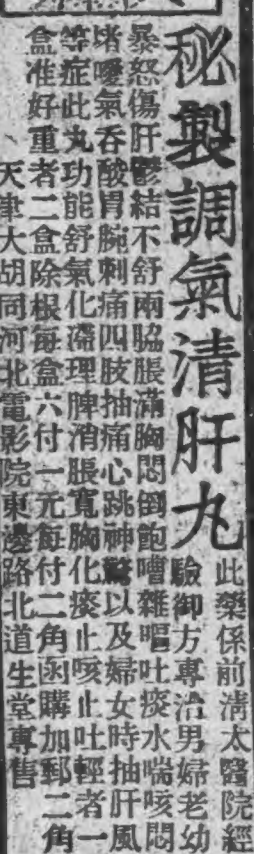 秘製調氣清肝丸
此藥係前清太醫院經
驗御方專治男婦老幼
暴怒傷肝鬱結不舒兩脇脹滿胸悶倒飽嘈雜嘔吐痰水喘咳悶
堵噯氣吞酸胃腕刺痛四肢抽痛心跳神驚以及婦女時抽肝風
等症此丸功能舒氣化滯理脾消脹寬胸化痰止咳止吐輕者一
盒准好重者二盒除根每盒六付一元每付二角函購加郵二角
天津大胡同河北電影院東邊路北道生堂專售